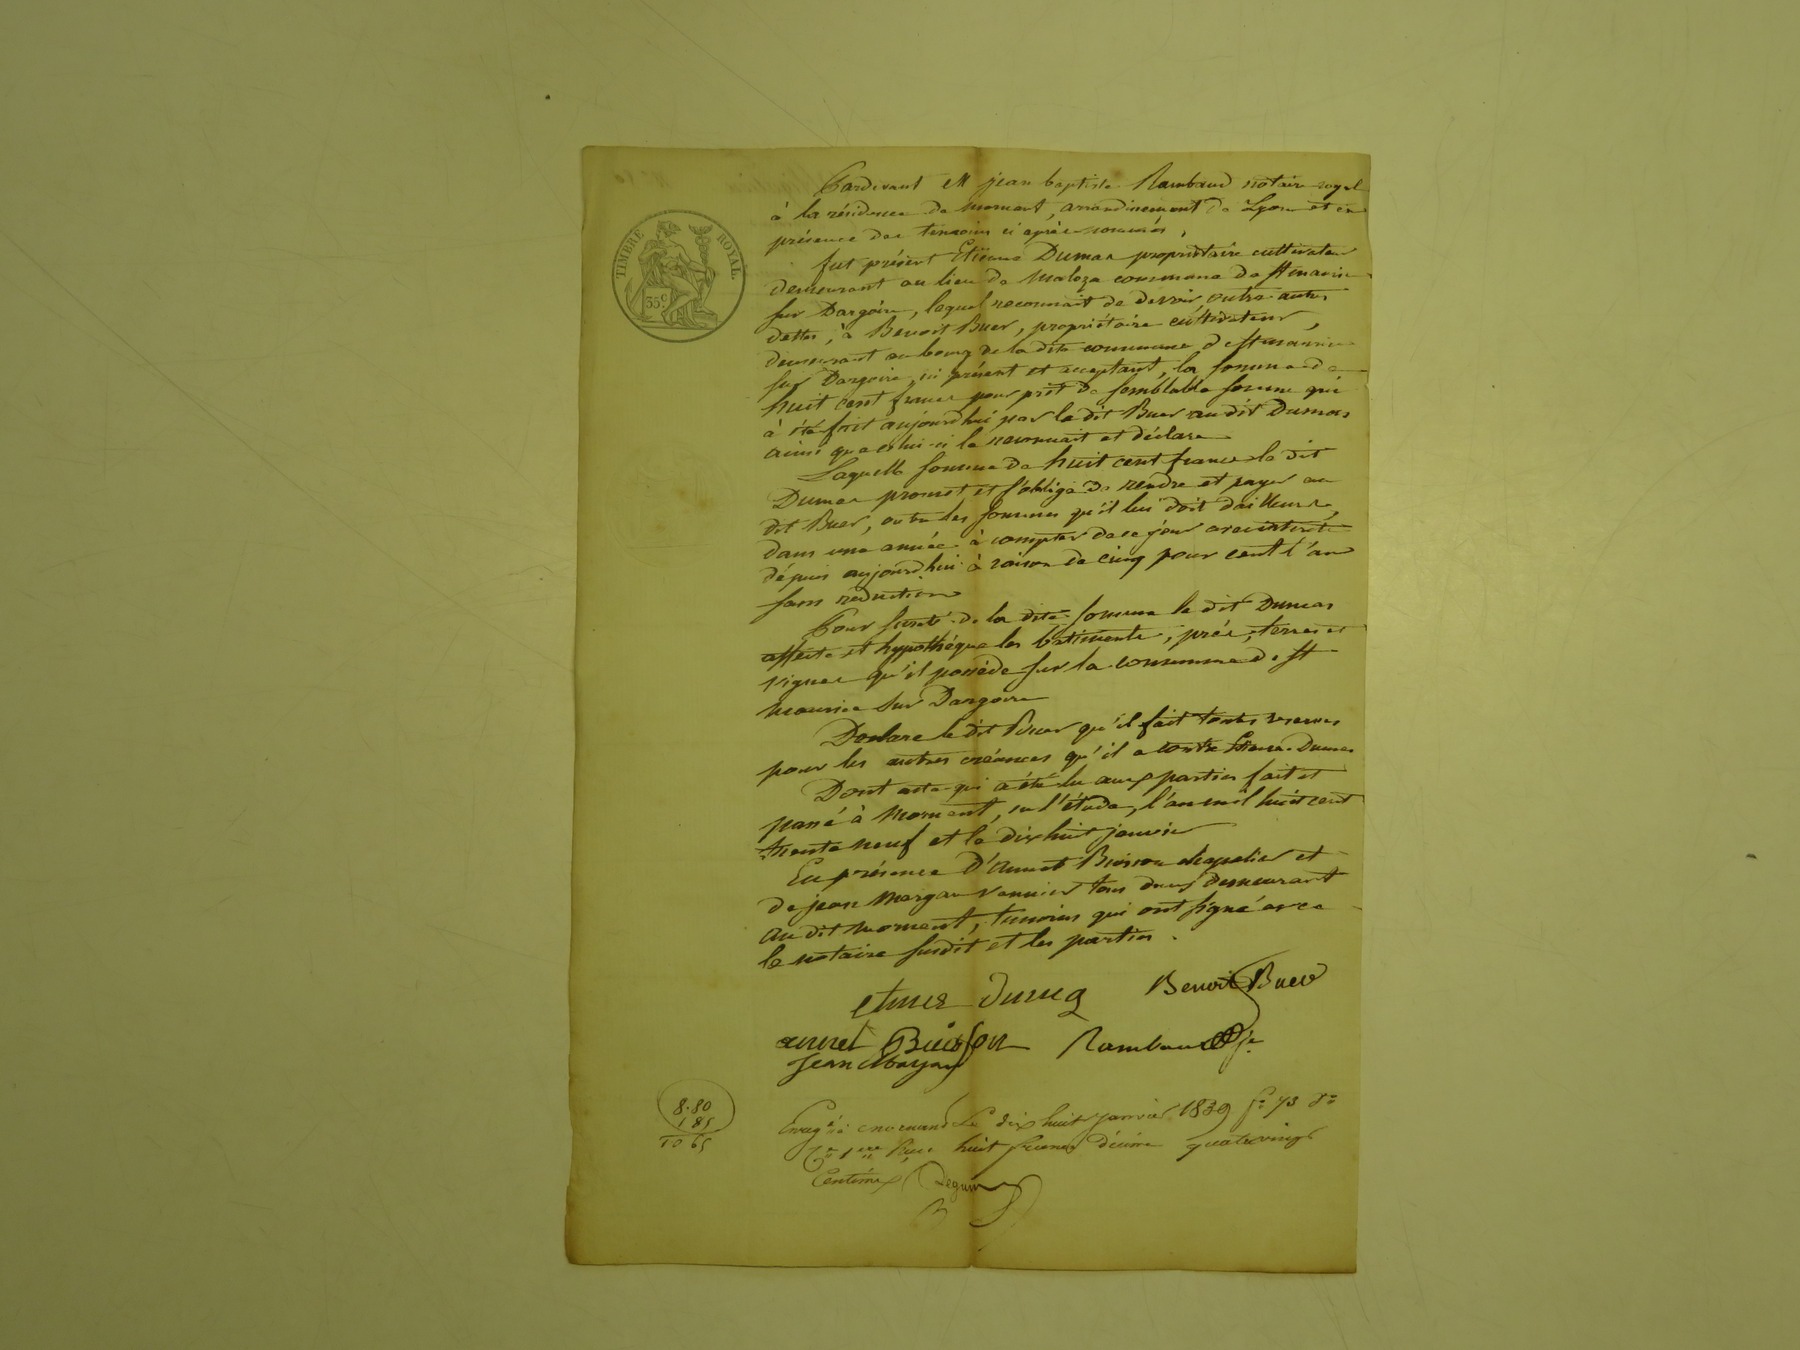 TIMBRE ROYAL
35 c
Pardevant M jean baptiste Rambaud notaire royal
à la résidence de Mornant, arrondissement de Lyon et en
présence des temoins ci après nommés,
fut présent Etienne Dumas propriétaire cultivateur
demeurant au lieu de Maloza commune de St maurice
sur Dargoire, lequel reconnait de devoir outre autres
dettes, à Benoit Buer, propriétaire cultivateur,
demeurant au bourg de la dite commune de St maurice
sur Dargoire, ici présent et acceptant, la somme de
huit cent francs pour prêt de semblable somme qui
à été fait aujourd'hui par le dit Buer au dit Dumas
ainsi que celui-ci le reconnait et déclare
Laquelle somme de huit cent francs le dit
Dumas promet et s'oblige de rendre et payer au
dit Buer, outre les sommes qu'il lui doit d'ailleurs,
dans une année à compter de ce jour avec intérêt
dépuis aujourd'hui à raison de cinq pour cent l'an
sans réduction
Pour sureté de la dite somme le dit Dumas
affecte et hypothéque les batiments, prés, terres et
vignes qu'il possède sur la commune de St
maurice sur Dargoire
Déclare le dit Buer qu'il fait toutes reserves
pour les autres créances qu'il a contre Etienne Dumas
Dont acte qui a été lu aux parties fait et
passé à Mornant, en l'étude, l'an mil huit cent
trente neuf et le dix huit janvier
En présence d'annet Buisson chapelier et
de jean tous deux demeurant
au dit Mornant, temoins qui ont signé avec
le notaire susdit et les parties.
etiene Dumas Benoit Buer
annet Buisson Rambaud
Jean
8.80
1 85
10 65
Enreg é à mornant le dix huit janvier 1839 fo 73
Reçu huit francs décime quatrevingt
Centimes